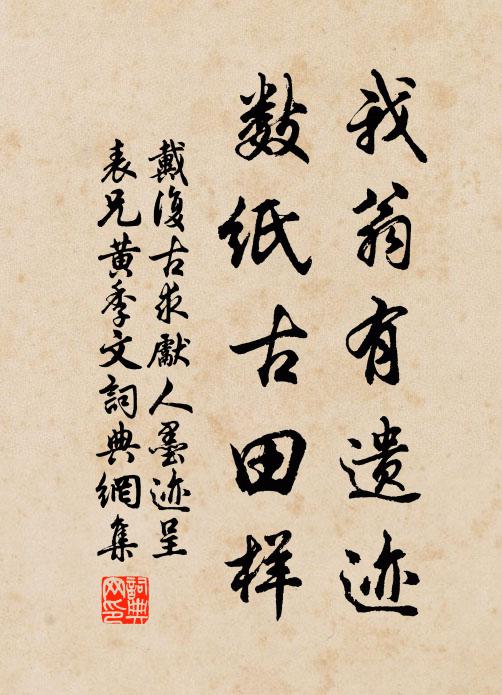 我翁有遗迹
数纸古田样
戴復古求獻人墨迹呈
表兄黄季文詞典網集
詞典
网印